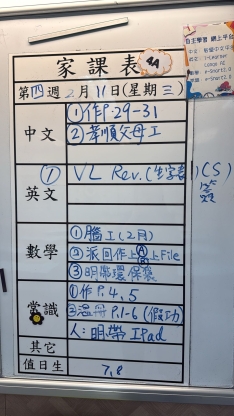 家課表
第四週 2月11日(星期三)
中文
①作P.29-31
②孝順父母工
英文
① VL Rev.(生字書)(S)
數學
①腦工(2月)
②派回作上Ⓐ上File
Ⓑ
③明帶環保袋
常識
①作P.4,5
②溫冊P.1-6(假功)
人:明帶IPad
其它
值日生
7,8
自主學習 網上平台